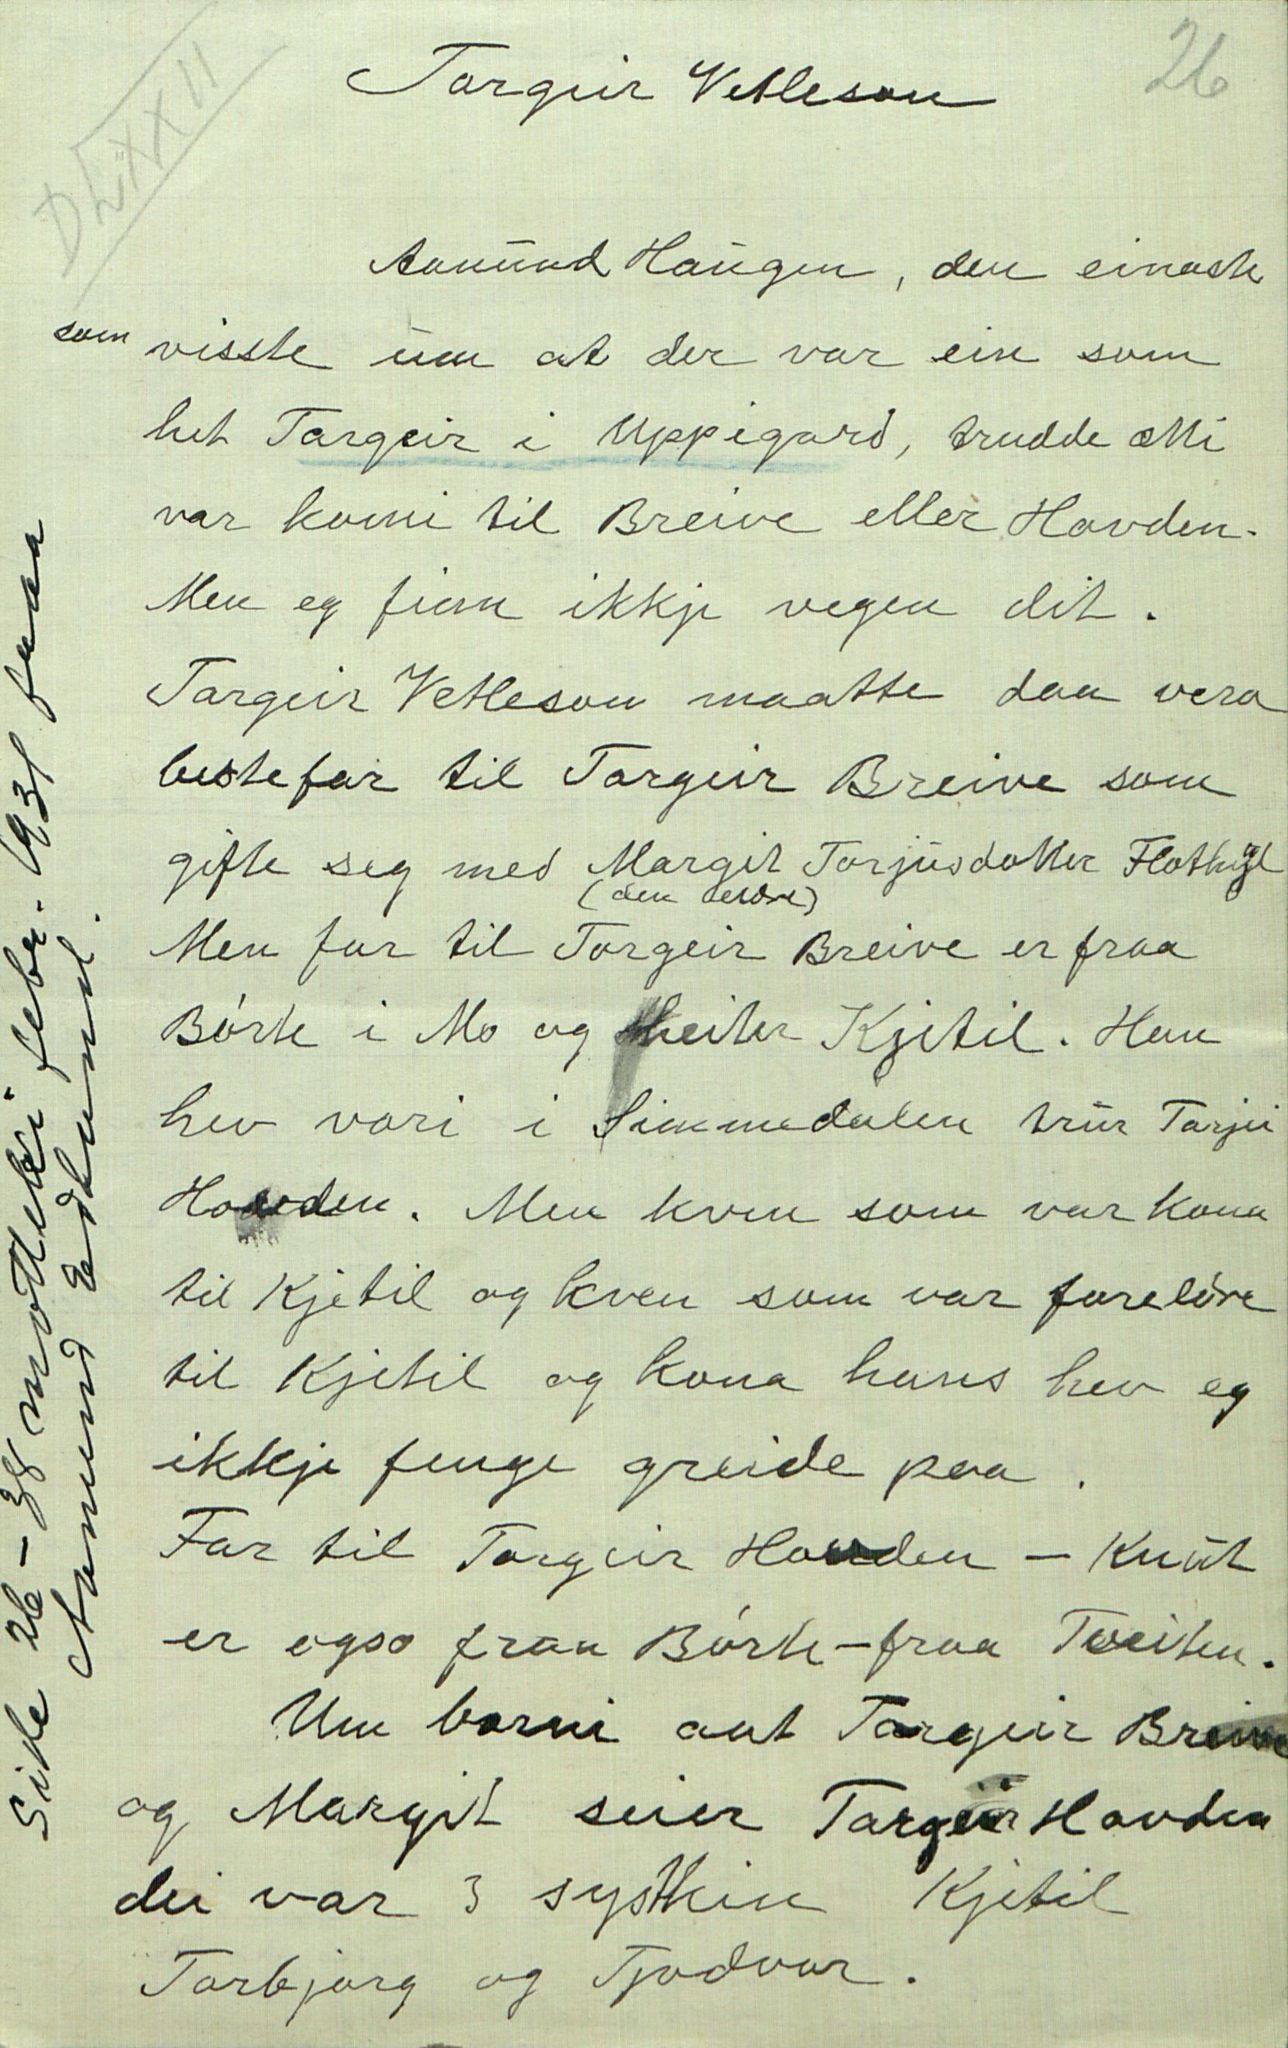 26
DLXXII
Targeir Vetleson
Aamund Haugen, den einaste
som visste um at der var ein som
het Targeir i Uppigard, trudde ætti
var komi til Breive eller Hovden.
Men eg finn ikkje vegen dit.
Targeir Vetleson maatte daa vera
bestefar til Targeir Breive som
gifte seg med Margit Torjusdotter Flothyl
(den eldre)
Men far til Torgeir Breive er fraa
Børte i Mo og heiter Kjetil. Han
hev vori i Simmedalen trur Tarjei
Hovden. Men kven som var kona
til Kjetil og kven som var foreldre
til Kjetil og kona hans hev eg
ikkje fenge greide paa.
Far til Torgeir Hovden – Knut
er ogso fraa Børte – fraa Tveiten.
Um borni aat Targeir Breive
og Margit seier Targeir Hovden
dei var 3 systkin Kjetil
Torbjørg og Tjodvor.
Side 26–38 mottekè i febr. 1931 fraa
Aamund Edland.